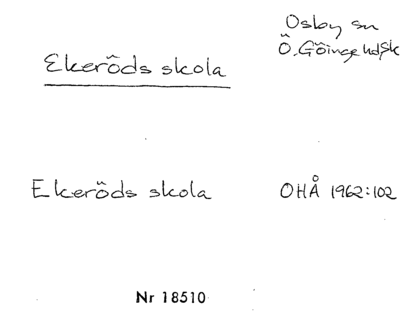 Osby sn
Ekeröds skola
Ö. Göinge hd, Sk
Ekeröds skola OHÅ 1962:102
Nr 18510